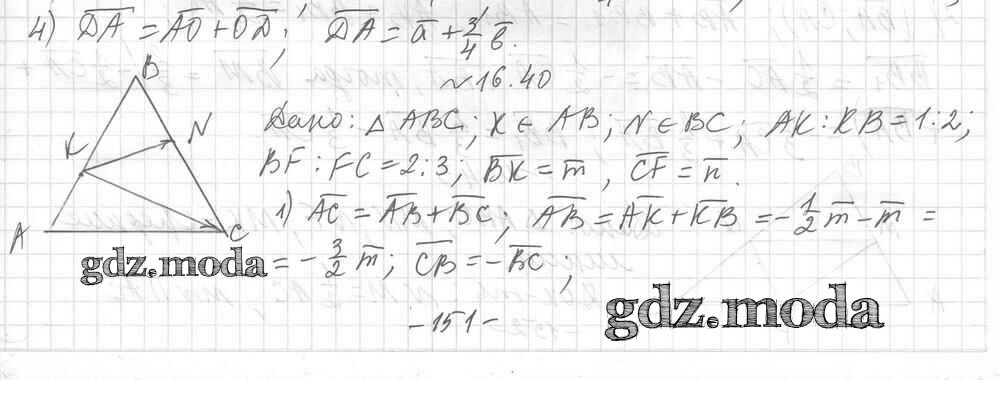 4) D̅A̅ = A̅O̅ + O̅D̅; D̅A̅ = a̅ + 3/4 b̅.
№16.40
Дано: △ ABC; K ∈ AB; N ∈ BC; AK : KB = 1:2;
BF : FC = 2:3; B̅K̅ = m̅, C̅F̅ = n̅.
1) A̅C̅ = A̅B̅ + B̅C̅; A̅B̅ = A̅K̅ + K̅B̅ = -1/2 m̅ - m̅ =
= -3/2 m̅; C̅B̅ = -B̅C̅;
B
K
N
A
C
gdz.moda
gdz.moda
-151-